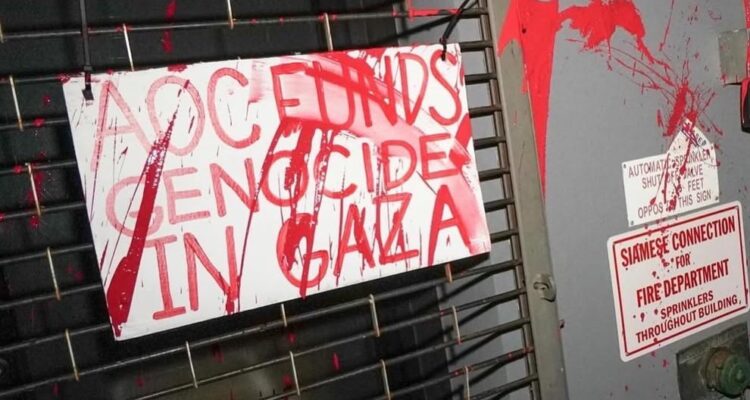 AOC FUNDS
GENOCIDE
IN GAZA
AUTOMATIC SPRINKLER
SHUT OFF VALVE
FEET
OPPOS THIS SIGN
SIAMESE CONNECTION
FOR
FIRE DEPARTMENT
SPRINKLERS
THROUGHOUT BUILDING